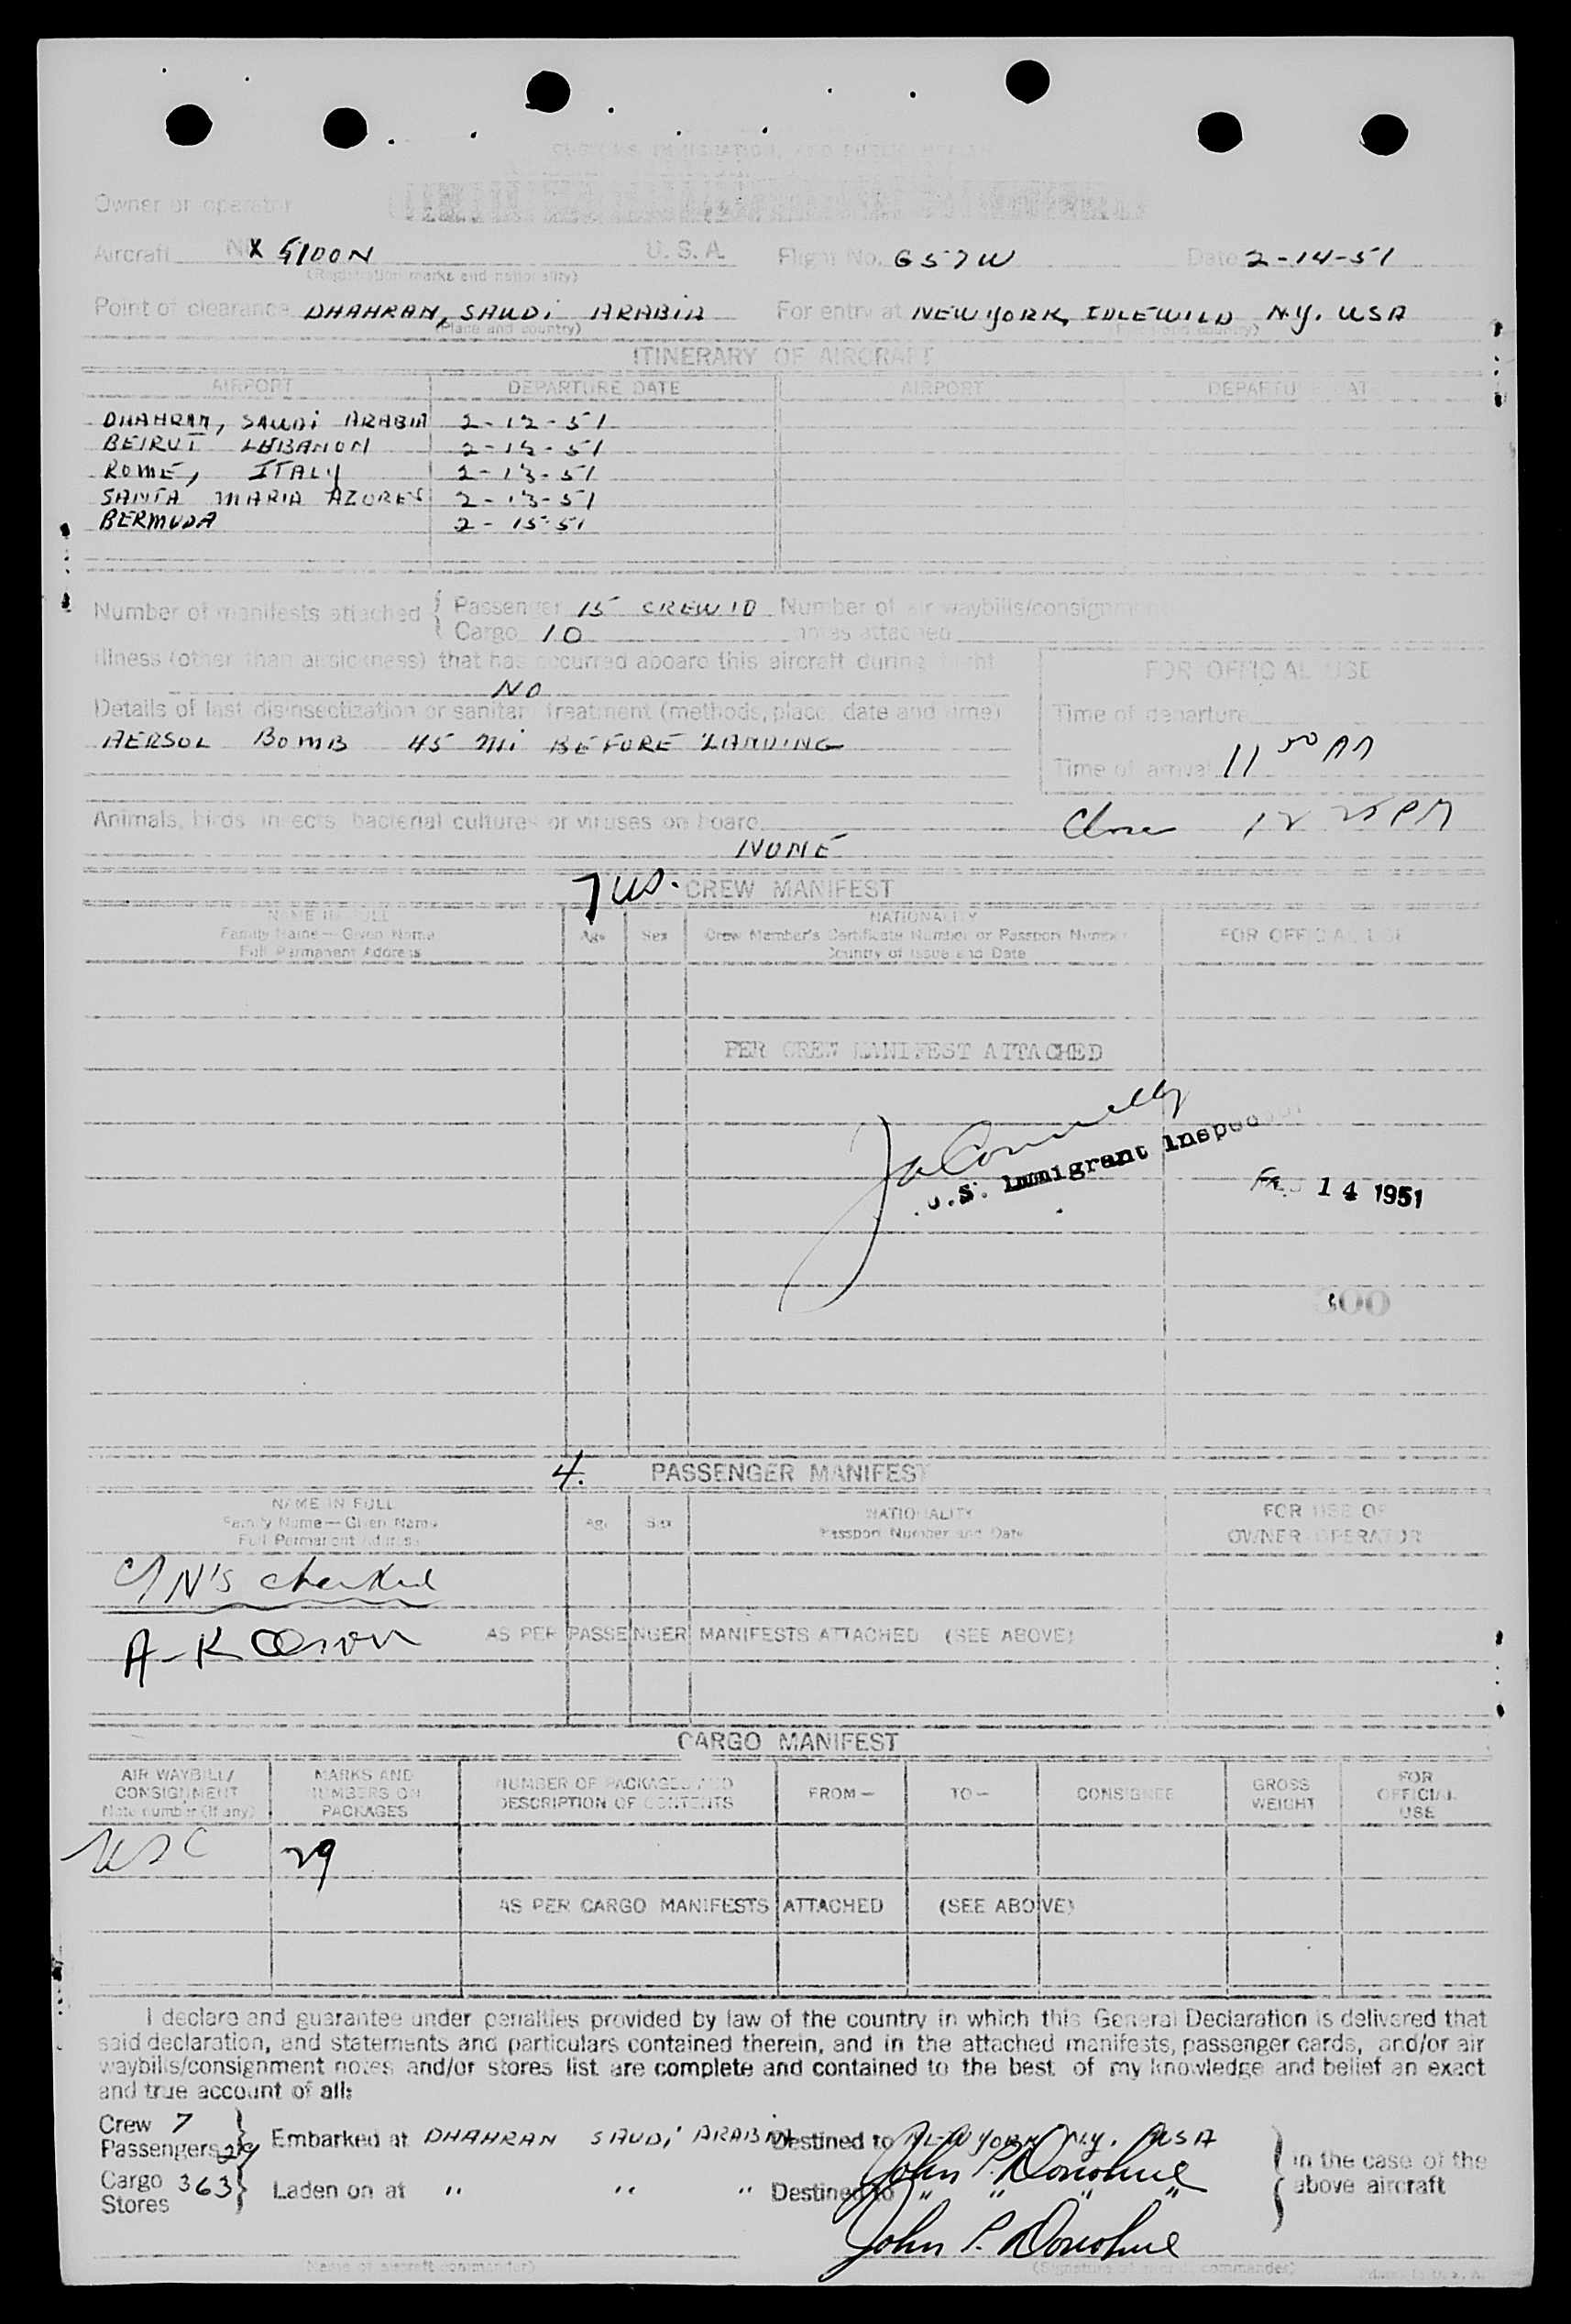 CUSTOMS, IMMIGRATION, AND PUBLIC HEALTH
Owner or operator
Aircraft NX 5100N U. S. A. Flight No. G57W Date 2-14-51
(Registration marks and nationality)
Point of clearance DHAHRAN, SAUDI ARABIA For entry at NEW YORK, IDLEWILD N.Y. USA
(Place and country) (Place and country)
ITINERARY OF AIRCRAFT
AIRPORT DEPARTURE DATE AIRPORT DEPARTURE DATE
DHAHRAN, SAUDI ARABIA 2-12-51
BEIRUT LEBANON 2-13-51
ROME, ITALY 2-13-51
SANTA MARIA AZORES 2-13-51
BERMUDA 2-15-51
Number of manifests attached { Passenger 15 CREW 10 Number of air waybills/consignment
Cargo 10 notes attached
Illness (other than airsickness) that has occurred aboard this aircraft during flight
NO
FOR OFFICIAL USE
Details of last disinsectization or sanitary treatment (methods, place, date and time)
Time of departure
AERSOL BOMB 45 Mi BEFORE LANDING
Time of arrival 11 50 AM
Animals, birds, insects, bacterial cultures or viruses on board
Close 12 25 PM
NONE
7 US. CREW MANIFEST
NAME IN FULL
Family Name — Given Name
Full Permanent Address
Age Sex
NATIONALITY
Crew Member's Certificate Number or Passport Number
Country of Issue and Date
FOR OFFICIAL USE
PER CREW MANIFEST ATTACHED
J A Connelly
U.S. Immigrant Inspector
FEB 14 1951
300
4. PASSENGER MANIFEST
NAME IN FULL
Family Name — Given Name
Full Permanent Address
Age Sex
NATIONALITY
Passport Number and Date
FOR USE OF
OWNER OPERATOR
checked
AS PER PASSENGER MANIFESTS ATTACHED (SEE ABOVE)
CARGO MANIFEST
AIR WAYBILL/
CONSIGNMENT
Note number (if any)
MARKS AND
NUMBERS ON
PACKAGES
NUMBER OF PACKAGES AND
DESCRIPTION OF CONTENTS
FROM —
TO —
CONSIGNEE
GROSS
WEIGHT
FOR
OFFICIAL
USE
USC 29
AS PER CARGO MANIFESTS ATTACHED (SEE ABOVE)
I declare and guarantee under penalties provided by law of the country in which this General Declaration is delivered that
said declaration, and statements and particulars contained therein, and in the attached manifests, passenger cards, and/or air
waybills/consignment notes and/or stores list are complete and contained to the best of my knowledge and belief an exact
and true account of all:
Crew 7
Passengers 29 } Embarked at DHAHRAN SAUDI ARABIA Destined to NEW YORK N.Y. USA
John P. Donohue
Cargo 363
Stores } Laden on at " " " Destined to " " " "
} in the case of the
above aircraft
John P. Donohue
(Name of aircraft commander) (Signature of aircraft commander)